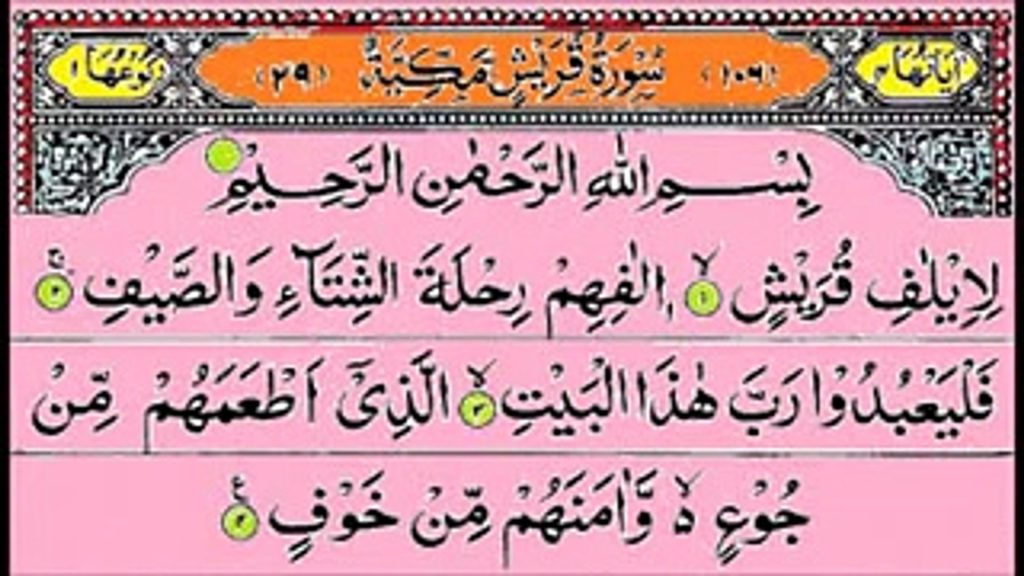 اٰيَاتُهَا ٤ (١٠٦) سُوْرَةُ قُرَيْشٍ مَكِّيَّةٌ (٢٩) رُكُوْعُهَا ١
بِسْمِ اللّٰهِ الرَّحْمٰنِ الرَّحِيْمِ
لِاِيْلٰفِ قُرَيْشٍ ۙ١ اٖلٰفِهِمْ رِحْلَةَ الشِّتَآءِ وَالصَّيْفِ ۚ٢
فَلْيَعْبُدُوْا رَبَّ هٰذَا الْبَيْتِ ۙ٣ الَّذِيْٓ اَطْعَمَهُمْ مِّنْ
جُوْعٍ ۙ٥ وَّاٰمَنَهُمْ مِّنْ خَوْفٍ ۧ٤